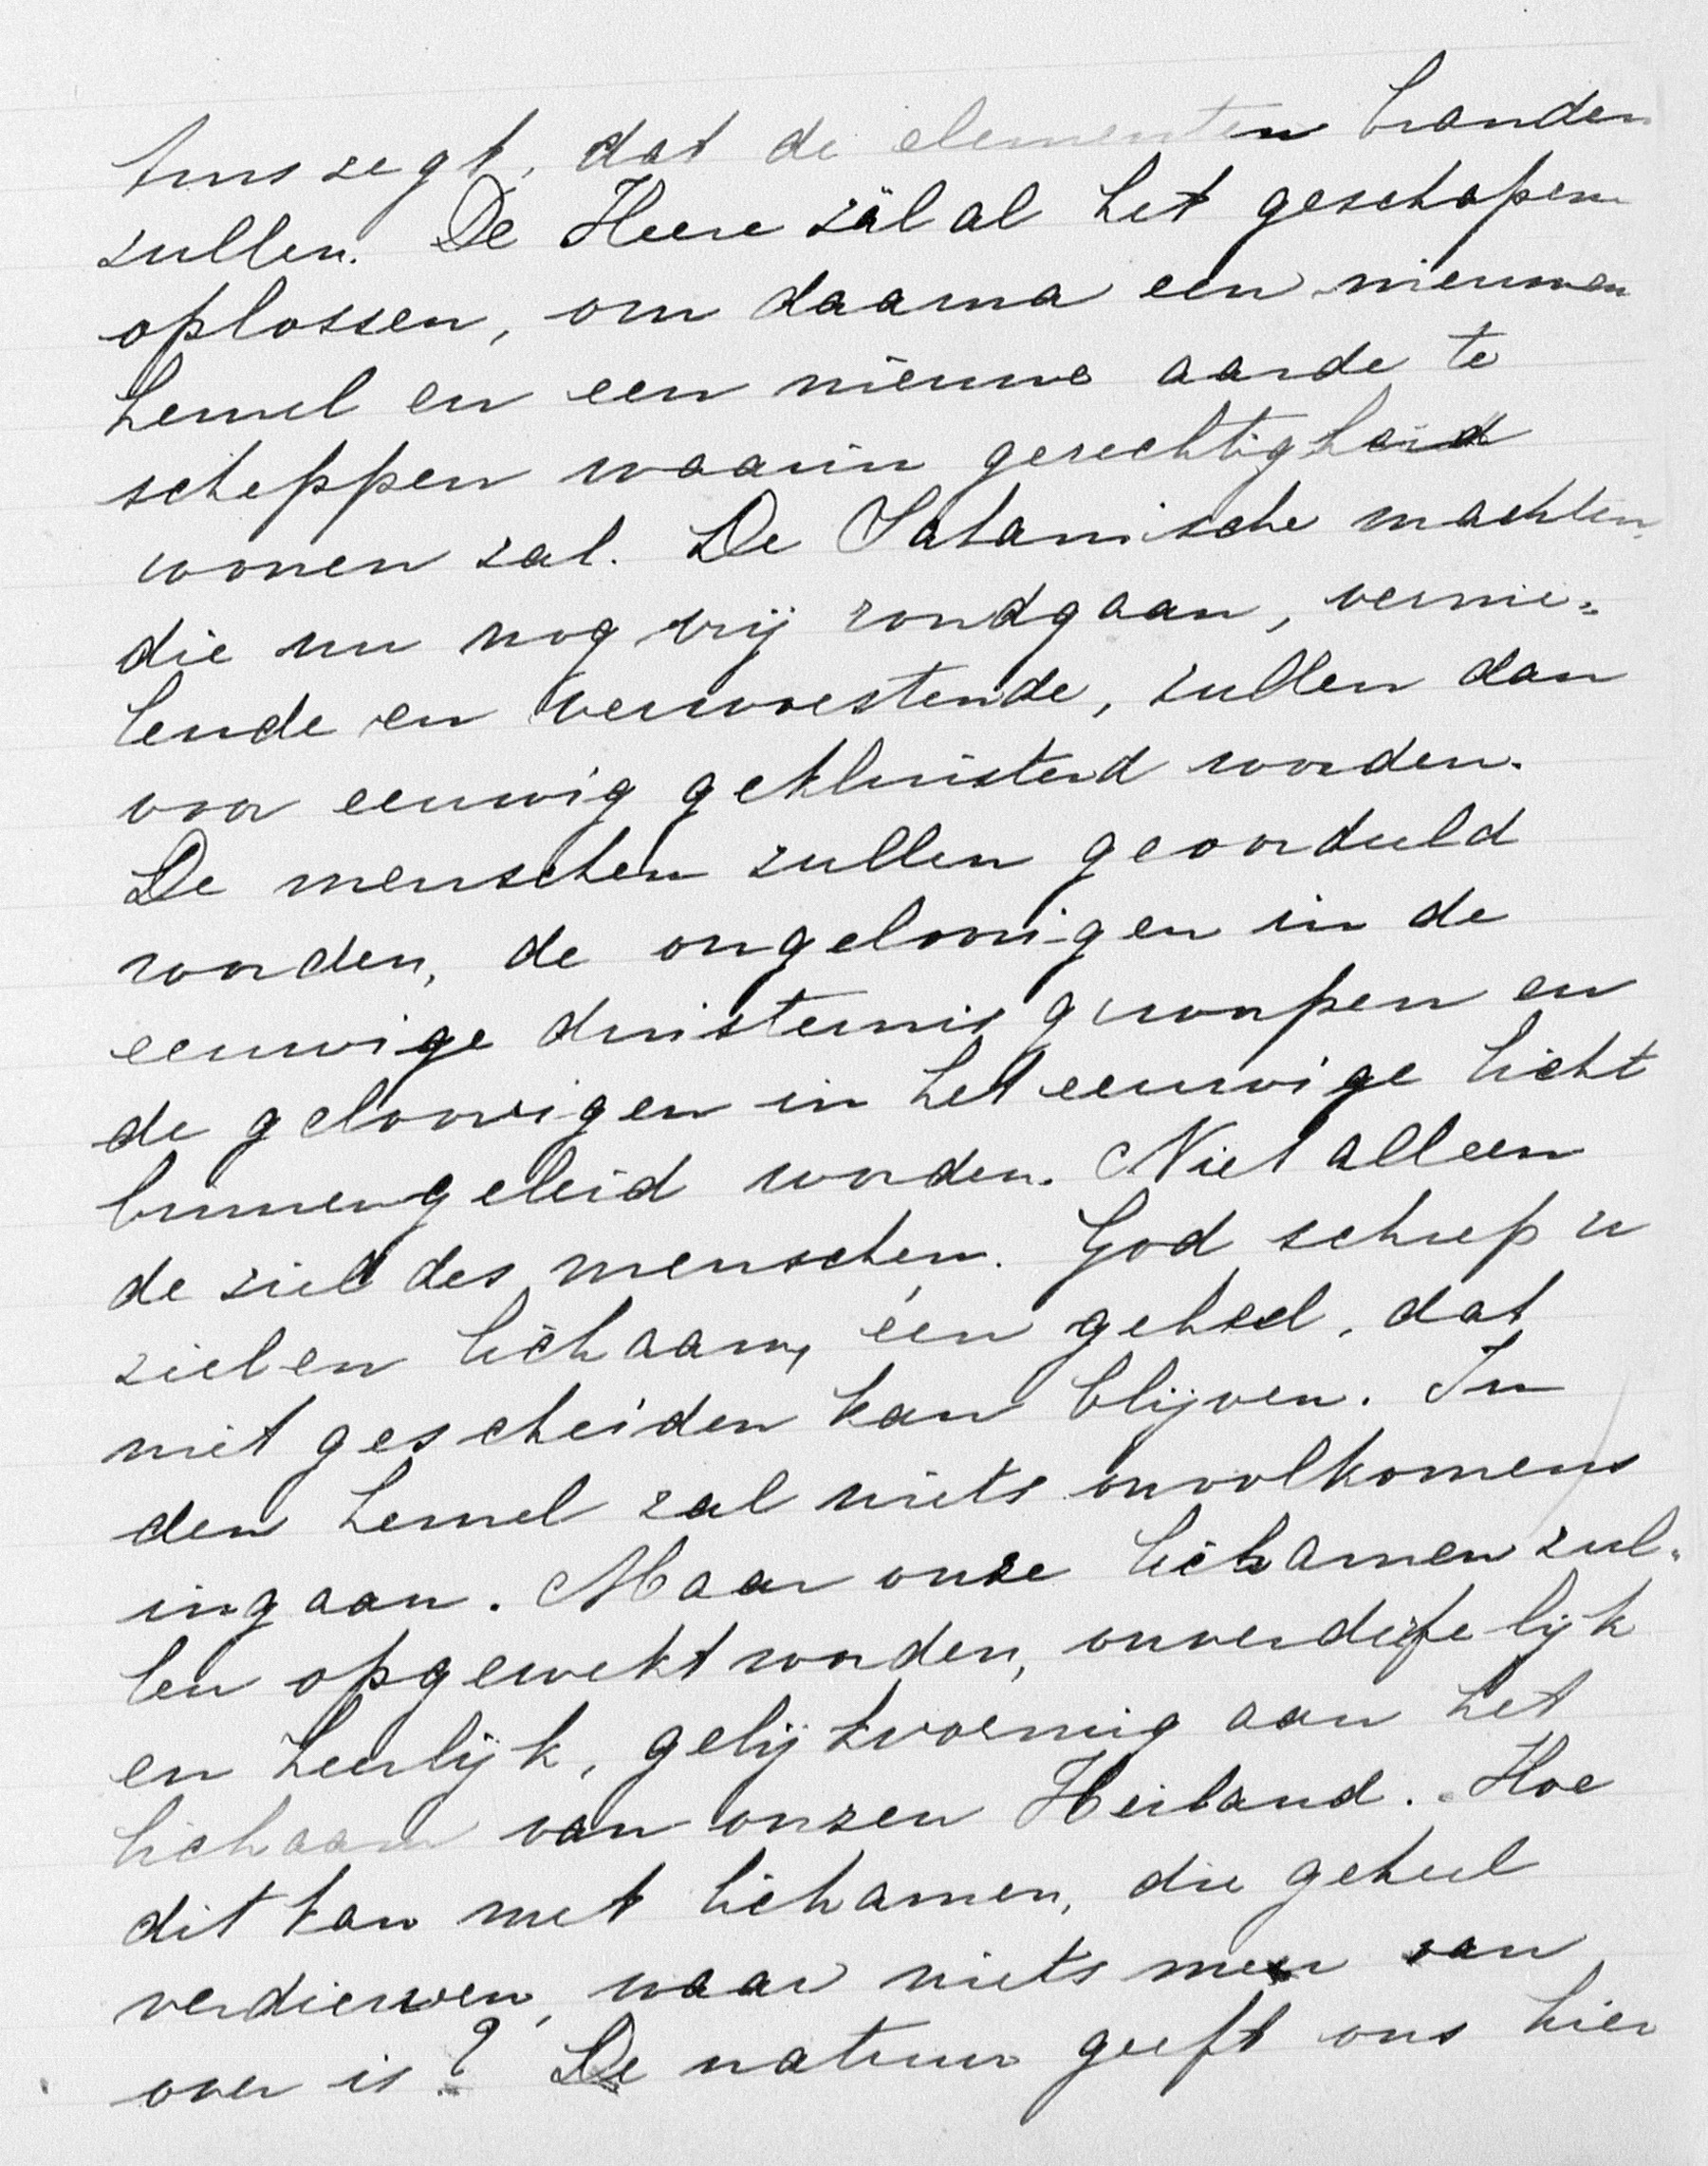 trus zegt, dat de elementen branden
zullen. De Heere zal al het geschapen
oplossen, om daarna een nieuwen
hemel en een nieuwe aarde te
scheppen waarin gerechtigheid
wonen zal. De Satanische machten
die nu nog vrij rondgaan, vernie-
lende en verwoestende, zullen dan
voor eeuwig gekluisterd worden.
De menschen zullen geoordeeld
worden, de ongeloovigen in de
eeuwige duisternis geworpen en
de geloovigen in het eeuwige licht
binnengeleid worden. Niet alleen
de ziel des menschen. God schiep u
ziel en lichaam, één geheel, dat
niet gescheiden kan blijven. In
den hemel zal niets onvolkomens
ingaan. Maar onze lichamen zul-
len opgewekt worden, onverdifelijk
en heerlijk, gelijkvormig aan het
lichaam van onzen Heiland. Hoe
dit kan met lichamen, die geheel
verdierven, waar niets meer van
over is? De natuur geeft ons hier